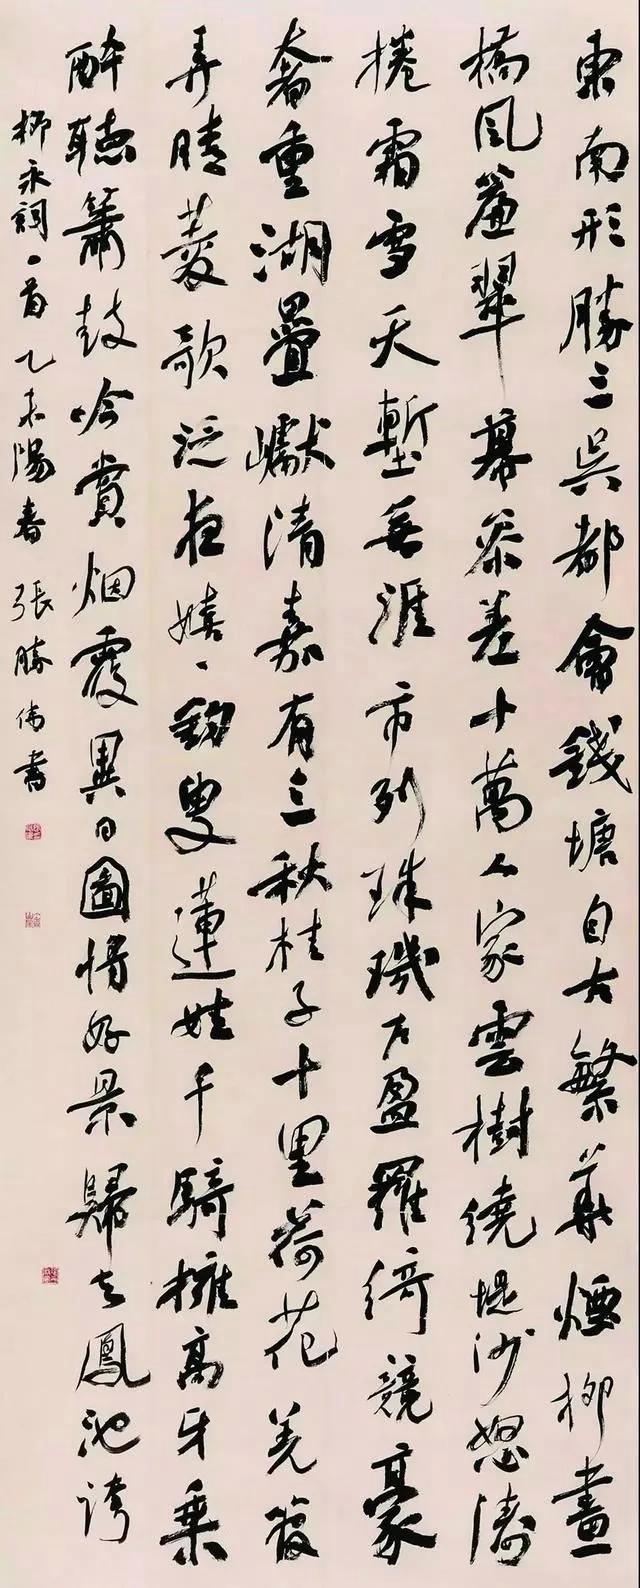 東南形勝三吳都會錢塘自古繁華煙柳畫
橋風簾翠幕參差十萬人家雲樹繞堤沙怒濤
捲霜雪天塹無涯市列珠璣戶盈羅綺競豪
奢重湖疊巘清嘉有三秋桂子十里荷花羌管
弄晴菱歌泛夜嬉丶釣叟蓮娃千騎擁高牙乘
醉聽簫鼓吟賞烟霞異日圖將好景歸去鳳池誇
柳永詞一首乙未陽春張勝偉書